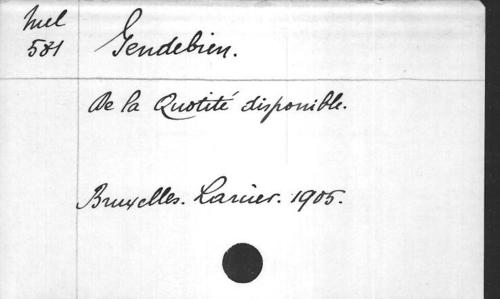 Mel
581
Gendebien.
De la Quotité disponible.
Bruxelles. Larcier. 1905.